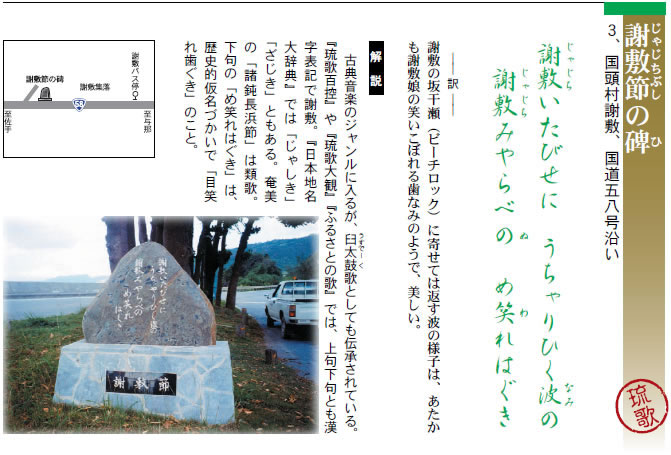 謝敷節の碑
じゃじちぶし ひ
3、国頭村謝敷、国道五八号沿い
謝敷いたびせに うちゃりひく波の
じゃじち なみ
謝敷みやらべの め笑れはぐき
じゃじち ぬ わ
訳
謝敷の坂干瀬(ビーチロック)に寄せては返す波の様子は、あたか
も謝敷娘の笑いこぼれる歯なみのようで、美しい。
解説
古典音楽のジャンルに入るが、臼太鼓歌としても伝承されている。
うすでーく
『琉歌百控』や『琉歌大観』『ふるさとの歌』では、上句下句とも漢
字表記で謝敷。『日本地名
大辞典』では「じゃしき」
「ざじき」ともある。奄美
の「諸鈍長浜節」は類歌。
下句の「め笑れはぐき」は、
歴史的仮名づかいで「目笑
れ歯ぐき」のこと。
琉歌
謝敷節の碑
謝敷集落
謝敷バス停
58
至佐手
至与那
謝敷いたびせに
うちやりひく波
謝敷みやらべの
め笑れ
はぐき
謝敷節